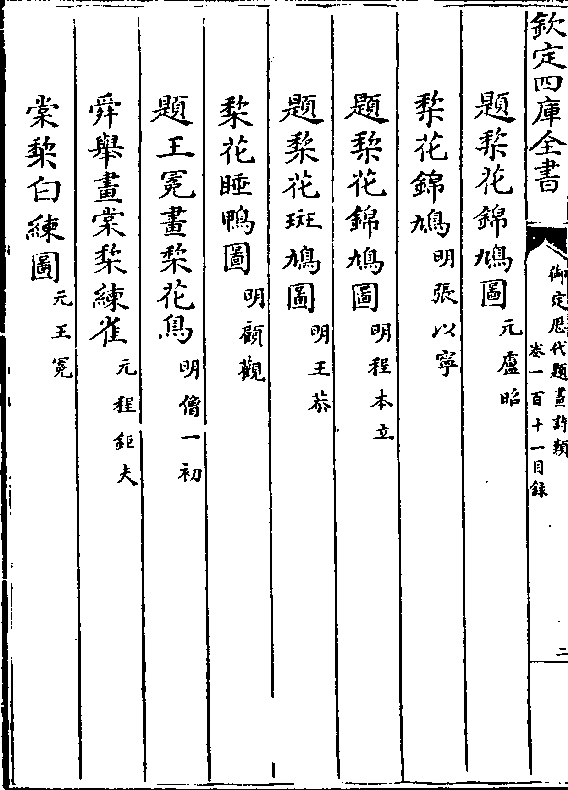 欽定四庫全書
御定歷代題畫詩類
卷一百十一目錄
二
題梨花錦鳩圖 元盧昭
梨花錦鳩 明張以寧
題梨花錦鳩圖 明程本立
題梨花斑鳩圖 明王恭
梨花睡鴨圖 明顧觀
題王冕畫梨花鳥 明僧一初
舜舉畫棠梨練雀 元程鉅夫
棠梨白練圖 元王冕